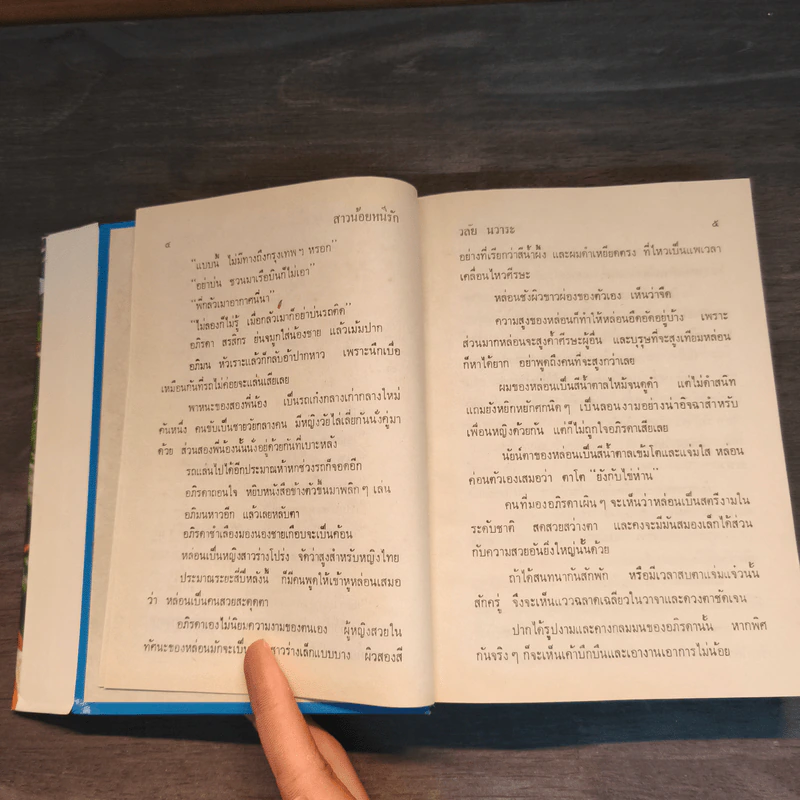 ๔
สาวน้อยหนีรัก
"แบบนี้ ไม่มีทางถึงกรุงเทพๆ หรอก"
"อย่าบ่น ชวนมาเรือบินก็ไม่เอา"
"พี่กลัวเมาอากาศนี่นา"
"ไม่ลองก็ไม่รู้ เมื่อกลัวเมาก็อย่าบ่นรถติด"
อภิรดา สรสิกร ย่นจมูกใส่น้องชาย แล้วเม้มปาก
อภิมน หัวเราะแล้วก็กลับอ้าปากหาว เพราะนึกเบื่อ
เหมือนกันที่รถไม่ค่อยจะแล่นเสียเลย
พาหนะของสองพี่น้อง เป็นรถเก๋งกลางเก่ากลางใหม่
คันหนึ่ง คนขับเป็นชายวัยกลางคน มีหญิงวัยไล่เลี่ยกันนั่งคู่มา
ด้วย ส่วนสองพี่น้องนั้นนั่งอยู่ด้วยกันที่เบาะหลัง
รถแล่นไปได้อีกประมาณห้าหกช่วงรถก็จอดอีก
อภิรดาถอนใจ หยิบหนังสือข้างตัวขึ้นมาพลิกๆ เล่น
อภิมนหาวอีก แล้วเลยหลับตา
อภิรดาชำเลืองมองน้องชายเกือบจะเป็นค้อน
หล่อนเป็นหญิงสาวร่างโปร่ง จัดว่าสูงสำหรับหญิงไทย
ประมาณระยะสี่ปีหลังนี้ ก็มีคนพูดให้เข้าหูหล่อนเสมอ
ว่า หล่อนเป็นคนสวยสะดุดตา
อภิรดาเองไม่นิยมความงามของตนเอง ผู้หญิงสวยใน
ทัศนะของหล่อนมักจะเป็น สาวร่างเล็กแบบบาง ผิวสองสี
วลัย นวาระ
๕
อย่างที่เรียกว่าสีน้ำผึ้ง และผมดำเหยียดตรง ที่ไหวเป็นแพเวลา
เคลื่อนไหวศีรษะ
หล่อนชังผิวขาวผ่องของตัวเอง เห็นว่าจืด
ความสูงของหล่อนก็ทำให้หล่อนอึดอัดอยู่บ้าง เพราะ
ส่วนมากหล่อนจะสูงค้ำศีรษะผู้อื่น และบุรุษที่จะสูงเทียมหล่อน
ก็หาได้ยาก อย่าพูดถึงคนที่จะสูงกว่าเลย
ผมของหล่อนเป็นสีน้ำตาลไหม้จนดูดำ แต่ไม่ดำสนิท
แถมยังหยิกหยักศกนิดๆ เป็นลอนงามอย่างน่าอิจฉาสำหรับ
เพื่อนหญิงด้วยกัน แต่ก็ไม่ถูกใจอภิรดาเสียเลย
นัยน์ตาของหล่อนเป็นสีน้ำตาลเข้มโตและแจ่มใส หล่อน
ค่อนตัวเองเสมอว่า ตาโต "ยังกับไข่ห่าน"
คนที่มองอภิรดาเผินๆ จะเห็นว่าหล่อนเป็นสตรีงามใน
ระดับชาติ สดสวยสว่างตา และคงจะมีมันสมองเล็กได้ส่วน
กับความสวยอันยิ่งใหญ่นั้นด้วย
ถ้าได้สนทนากันสักพัก หรือมีเวลาสบตาแจ่มแจ๋วนั้น
สักครู่ จึงจะเห็นแววฉลาดเฉลียวในวาจาและดวงตาชัดเจน
ปากได้รูปงามและคางกลมมนของอภิรดานั้น หากพิศ
กันจริงๆ ก็จะเห็นเค้าบึกบึนและเอางานเอาการไม่น้อย